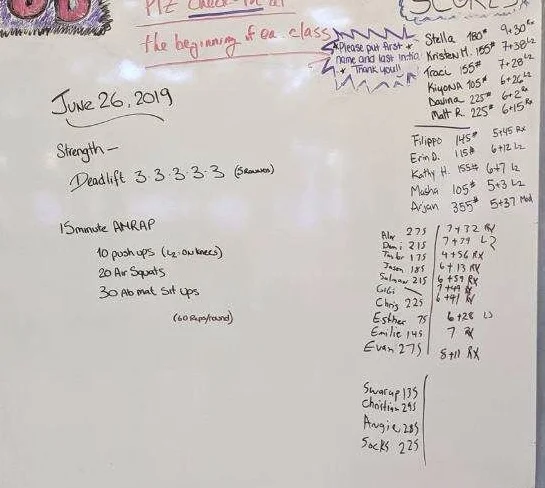 Plz Check-in at
the beginning of ea. class
SCORES
*Please put first *
name and last initial
* Thank you!! *
June 26, 2019
Strength –
Deadlift 3·3·3·3·3 (5 Rounds)
15 minute AMRAP
10 push ups (L2: on knees)
20 Air Squats
30 Abmat Sit ups
(60 Reps/round)
Stella 180# 9+30 Rx
Kristen M. 155# 7+38 L2
Traci 155# 7+28 L2
Kiyona 105# 6+26 L2
Davina 225# 6+2 Rx
Matt R. 225# 6+15 Rx
Filippo 145# 5+45 Rx
Erin D. 115# 6+12 L2
Kathy H. 155# 6+7 L2
Masha 105# 5+3 L2
Arjan 355# 5+37 Mod
Alex 275 7+32 RX
Dani 215 7+29 L2
Taylor 175 4+56 RX
Jason 185 6+13 RX
Salman 215 6+59 RX
GiGi 7+49 RX
Chris 225 6+41 RX
Esther 75 6+28 L2
Emilie 145 7 RX
Evan 275 8+11 RX
Swarup 135
Christian 295
Angie 285
Socks 225